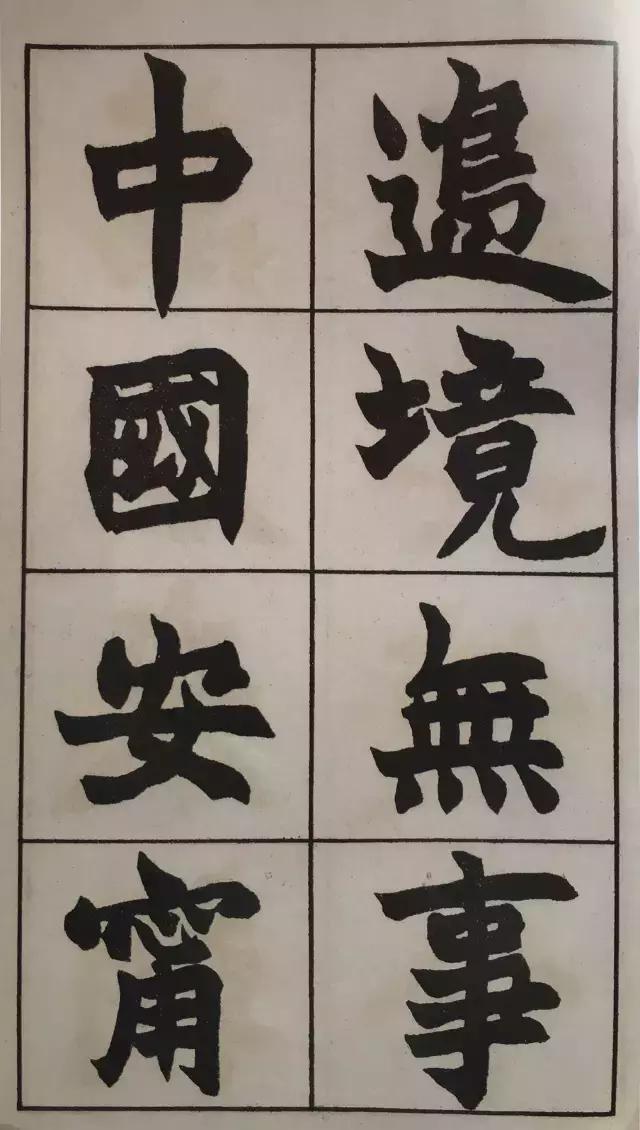 邊境無事
中國安甯